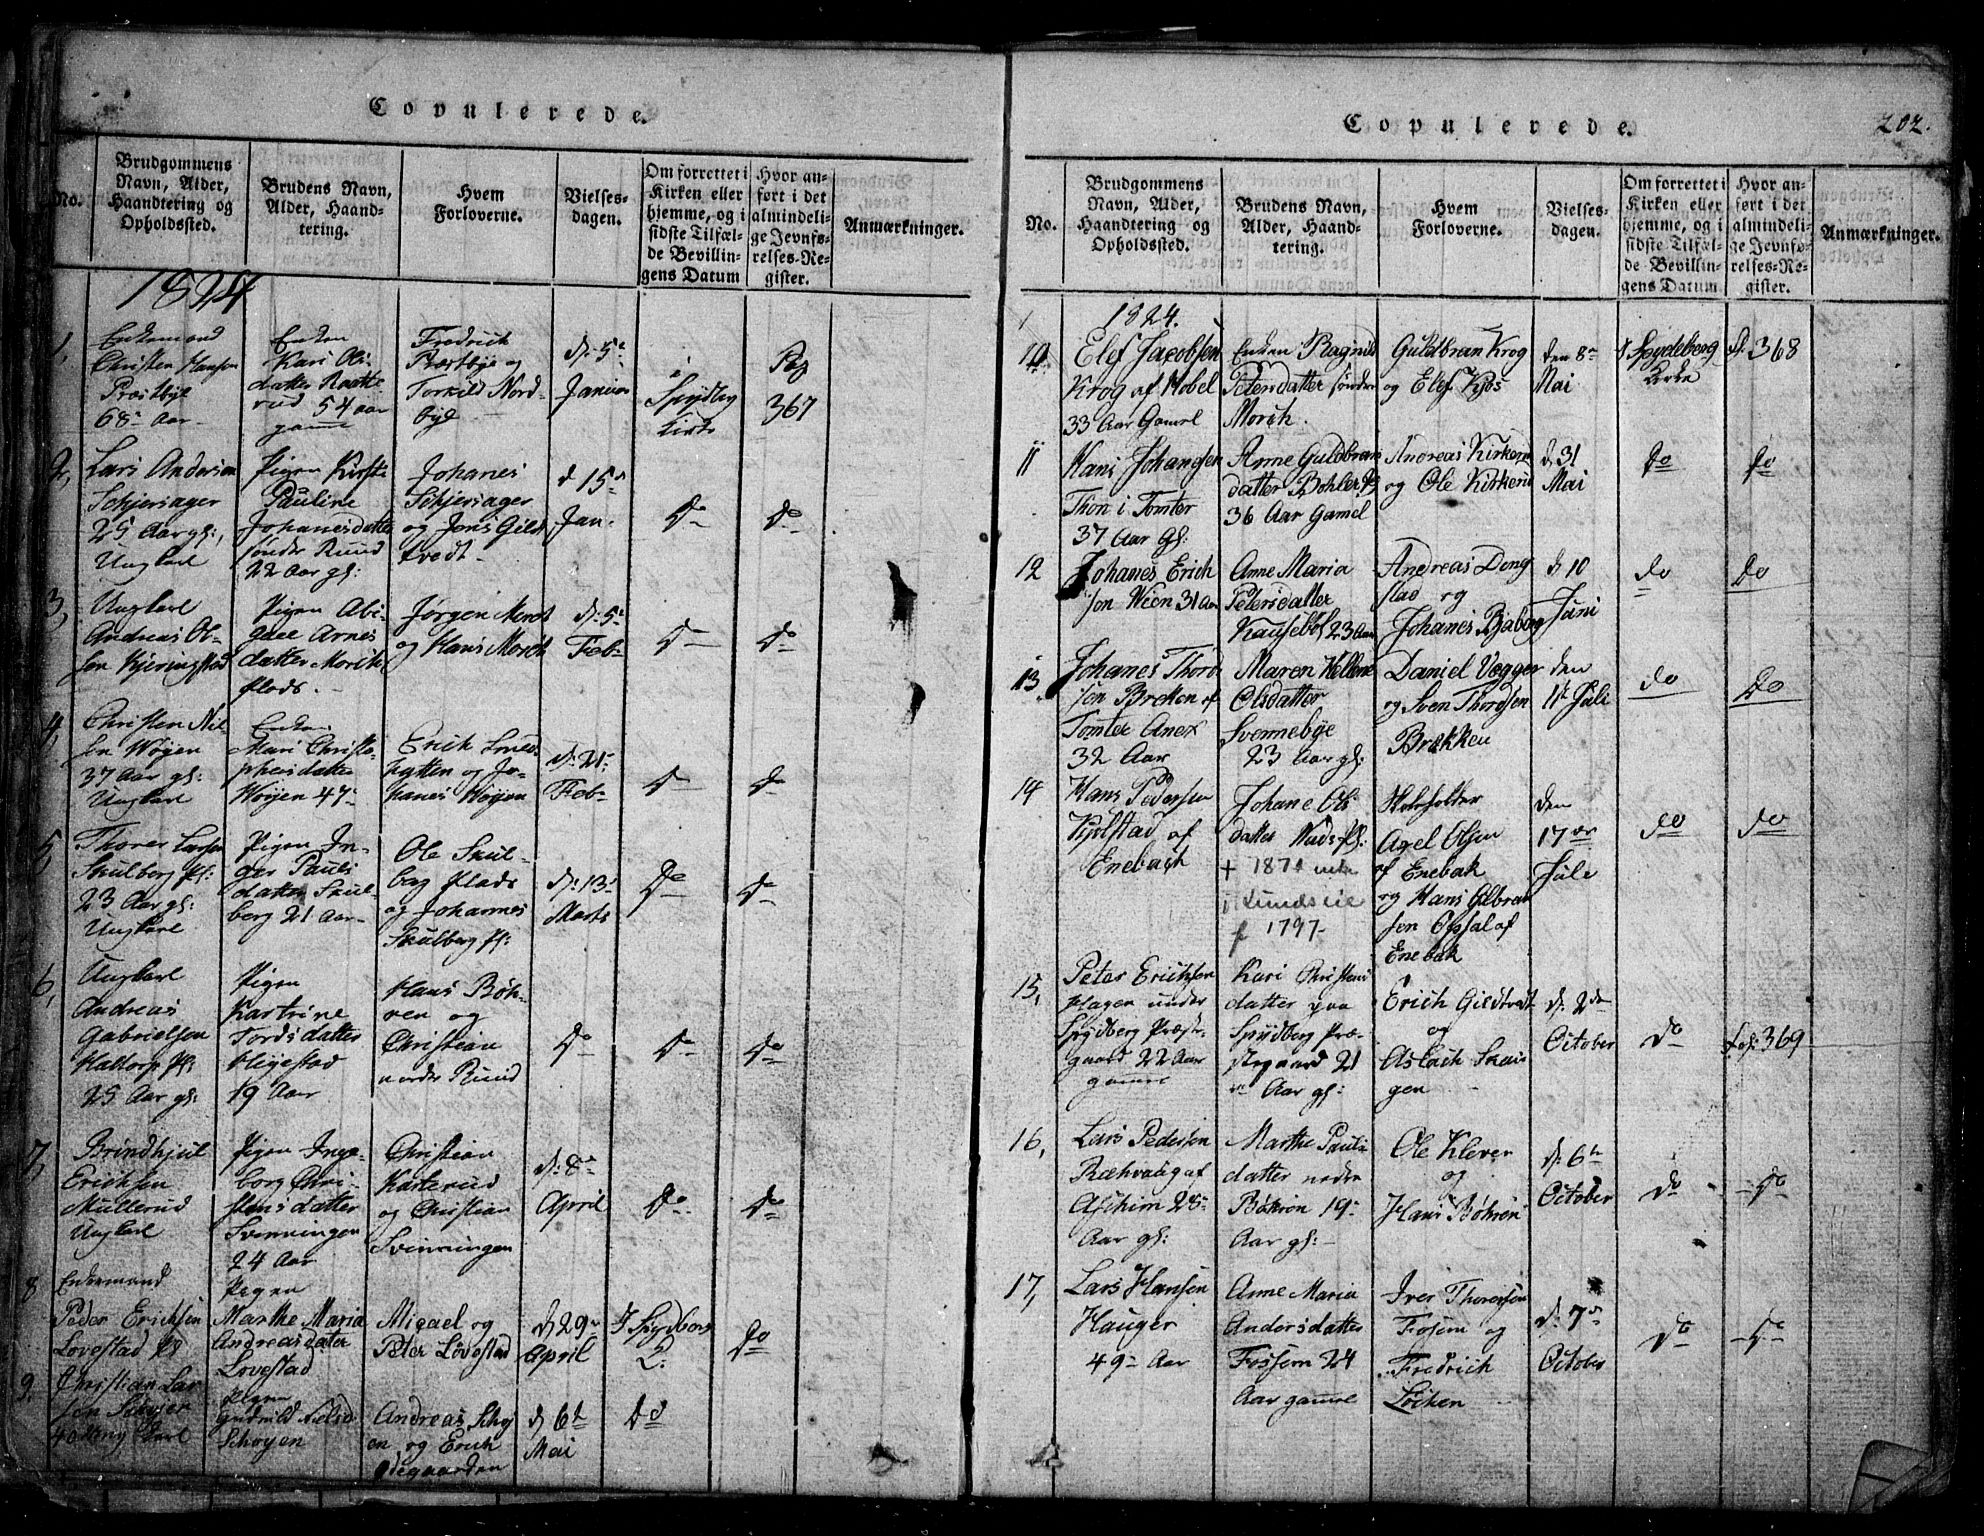 Copulerede.
No.
Brudgommens
Navn, Alder,
Haandtering og
Opholdssted.
Brudens Navn,
Alder, Haand-
tering.
Hvem
Forloverne.
Vielses-
dagen.
Om forrettet i
Kirken eller
hjemme, og i
sidste Tilfæl-
de Bevillin-
gens Datum
Hvor an-
ført i det
almindeli-
ge Jevnfø-
relses-Re-
gister.
Anmærkninger.
1824
1,
Enkemand
Christen Hansen
Præstbye
68 Aar
Enken
Kari Ols
datter
rud 54 aar
gamme
Fredrick
Præstbye og
Torkild Nord-
bye
d: 5te
Januar
i
Spydberg
Kirke
Pag
367
2,
Lars Andersen
Schjersager
25 Aar gl:,
Ungkarl
Pigen Kirst
Pauline
Johanesdatter
søndr Ruud
22 Aar gl:
Johanes
Schjersager
og Jens Gilds
tvedt
d 15de
Jan.
Do
Do
3,
Ungkarl
Andreas Ol-
sen Kjeringstad
Pigen Abi-
gael Arnes
datter Morsk
plads.
Jørgen Morch
og Hans Morsch
d: 5te
Feb
Do
Do
4,
Christen Nil-
sen Wøyen
37 Aar gl:
Ungkarl
Enken
Mari Christo-
phersdatter
Wøyen 47
Erich Smed-
hatten og Jo-
hanes Wøyen
d: 21
Feb
Do
Do
5,
Thorer Larsen
Skulberg pl:
23 Aar gl:
Ungkarl
Pigen In-
ger Pauls
datter Skul-
berg 21 Aar
Ole Skul-
berg plads
og Johannes
Skulberg pl:
d: 13
Marts
Do
Do
6,
Ungkarl
Andreas
Gabrielsen
Haltorp pl:
25 Aar gl:
Pigen
Kartrine
Tordsdatter
Hligestad
19 Aar
Hans Bøh-
ren og
Christian
nordre Ruud
Do
Do
Do
7,
Brindhjul
Erichsen
Mullerud
Ungkarl
Pigen Inge-
borg Chri-
stensdatter
Svenningen
24 Aar
Christian
Kasterud
og Christian
Svenningen
d: 8de
April
Do
Do
8
Enkemand
Peder Erichsen
Lovestad
Pigen
Marthe Maria
Andreasdater
Lovestad
Migael og
Peter Lovestad
d 29
April
I Spydberg
Do
9,
Christian Lar
sen Schøien
40 Karl
Pigen
Gunild Nielsd
Schøyen
Andreas Schøj
en og Erich
Ødegaarden
d 6te
Mai
Do
Copulerede.
202.
No.
Brudgommens
Navn, Alder,
Haandtering og
Opholdssted.
Brudens Navn,
Alder, Haand-
tering.
Hvem
Forloverne.
Vielses-
dagen.
Om forrettet i
Kirken eller
hjemme, og i
sidste Tilfæl-
de Bevillin-
gens Datum
Hvor an-
ført i det
almindeli-
ge Jevnfø-
relses-Re-
gister.
Anmærkninger.
1824.
10
Elef Jacobsen
Krog af Hobel
33 Aar Gamel
Enken Ragnil
Petersdatter søndre
Morch.
Guldbran Krog
og Elef Kjos
den 8de
Mai
I Spydeberg
Kirke
368
11
Hans Johansen
Thon i Tomter
37 Aar gl:
Anne Guldbran
datter Bohler
36 Aar Gamel
Andreas Kirkeru
og Ole Kirkeru
d 31
Mai
Do
Do
12
Johanes Erich
sen Wien 31 Aar
Anne Maria
Petersdatter
Kausebol 23 Aar
Andreas Dong
stad og
Johanes Baberg
d 10
Juni
Do
Do
13
Johanes Thord
sen Breken af
Tomter Anex
32 Aar
Maren Hellene
Olsdatter
Svennebye
23 Aar gl:
Daniel Vegger
og Sven Thordsen
Brækken
den
1st Juli
Do
Do
14
Hans Pedersen
Kjelstad af
Enebach
Johane Ols
datter
+ 1871
i Lundseie
f 1797
Skoleholder
Axel Olsen
af Enebak
og Hans Gulbran
sen Opsal af
Enebak
den
17de
Juli
Do
Do
15,
Peter Erichsen
Hagen under
Spydberg Præst-
gaard 22 Aar
gamme
Kari Christens
datter paa
Spydberg Præ-
stegaard 21
Aar gl:
Erich Gildtvedt
og
Aslach Skau-
gen
d: 2de
October
Do
Fol: 369
16,
Lars Pedersen
Ræhvaug af
Aschim 28
Aar gl:
Marthe Pauls
datter nedre
Bøhren 19
Aar gl:
Ole Klever
og
Hans Bøhren
d: 6te
October
Do
Do
17,
Lars Hansen
Hauger
49 Aar
Anne Maria
Andersdatter
Fossum 24
Aar gamle
Iver Thoresen
Fossum og
Fredrich
Løcken
d: 7de
October
Do
Do